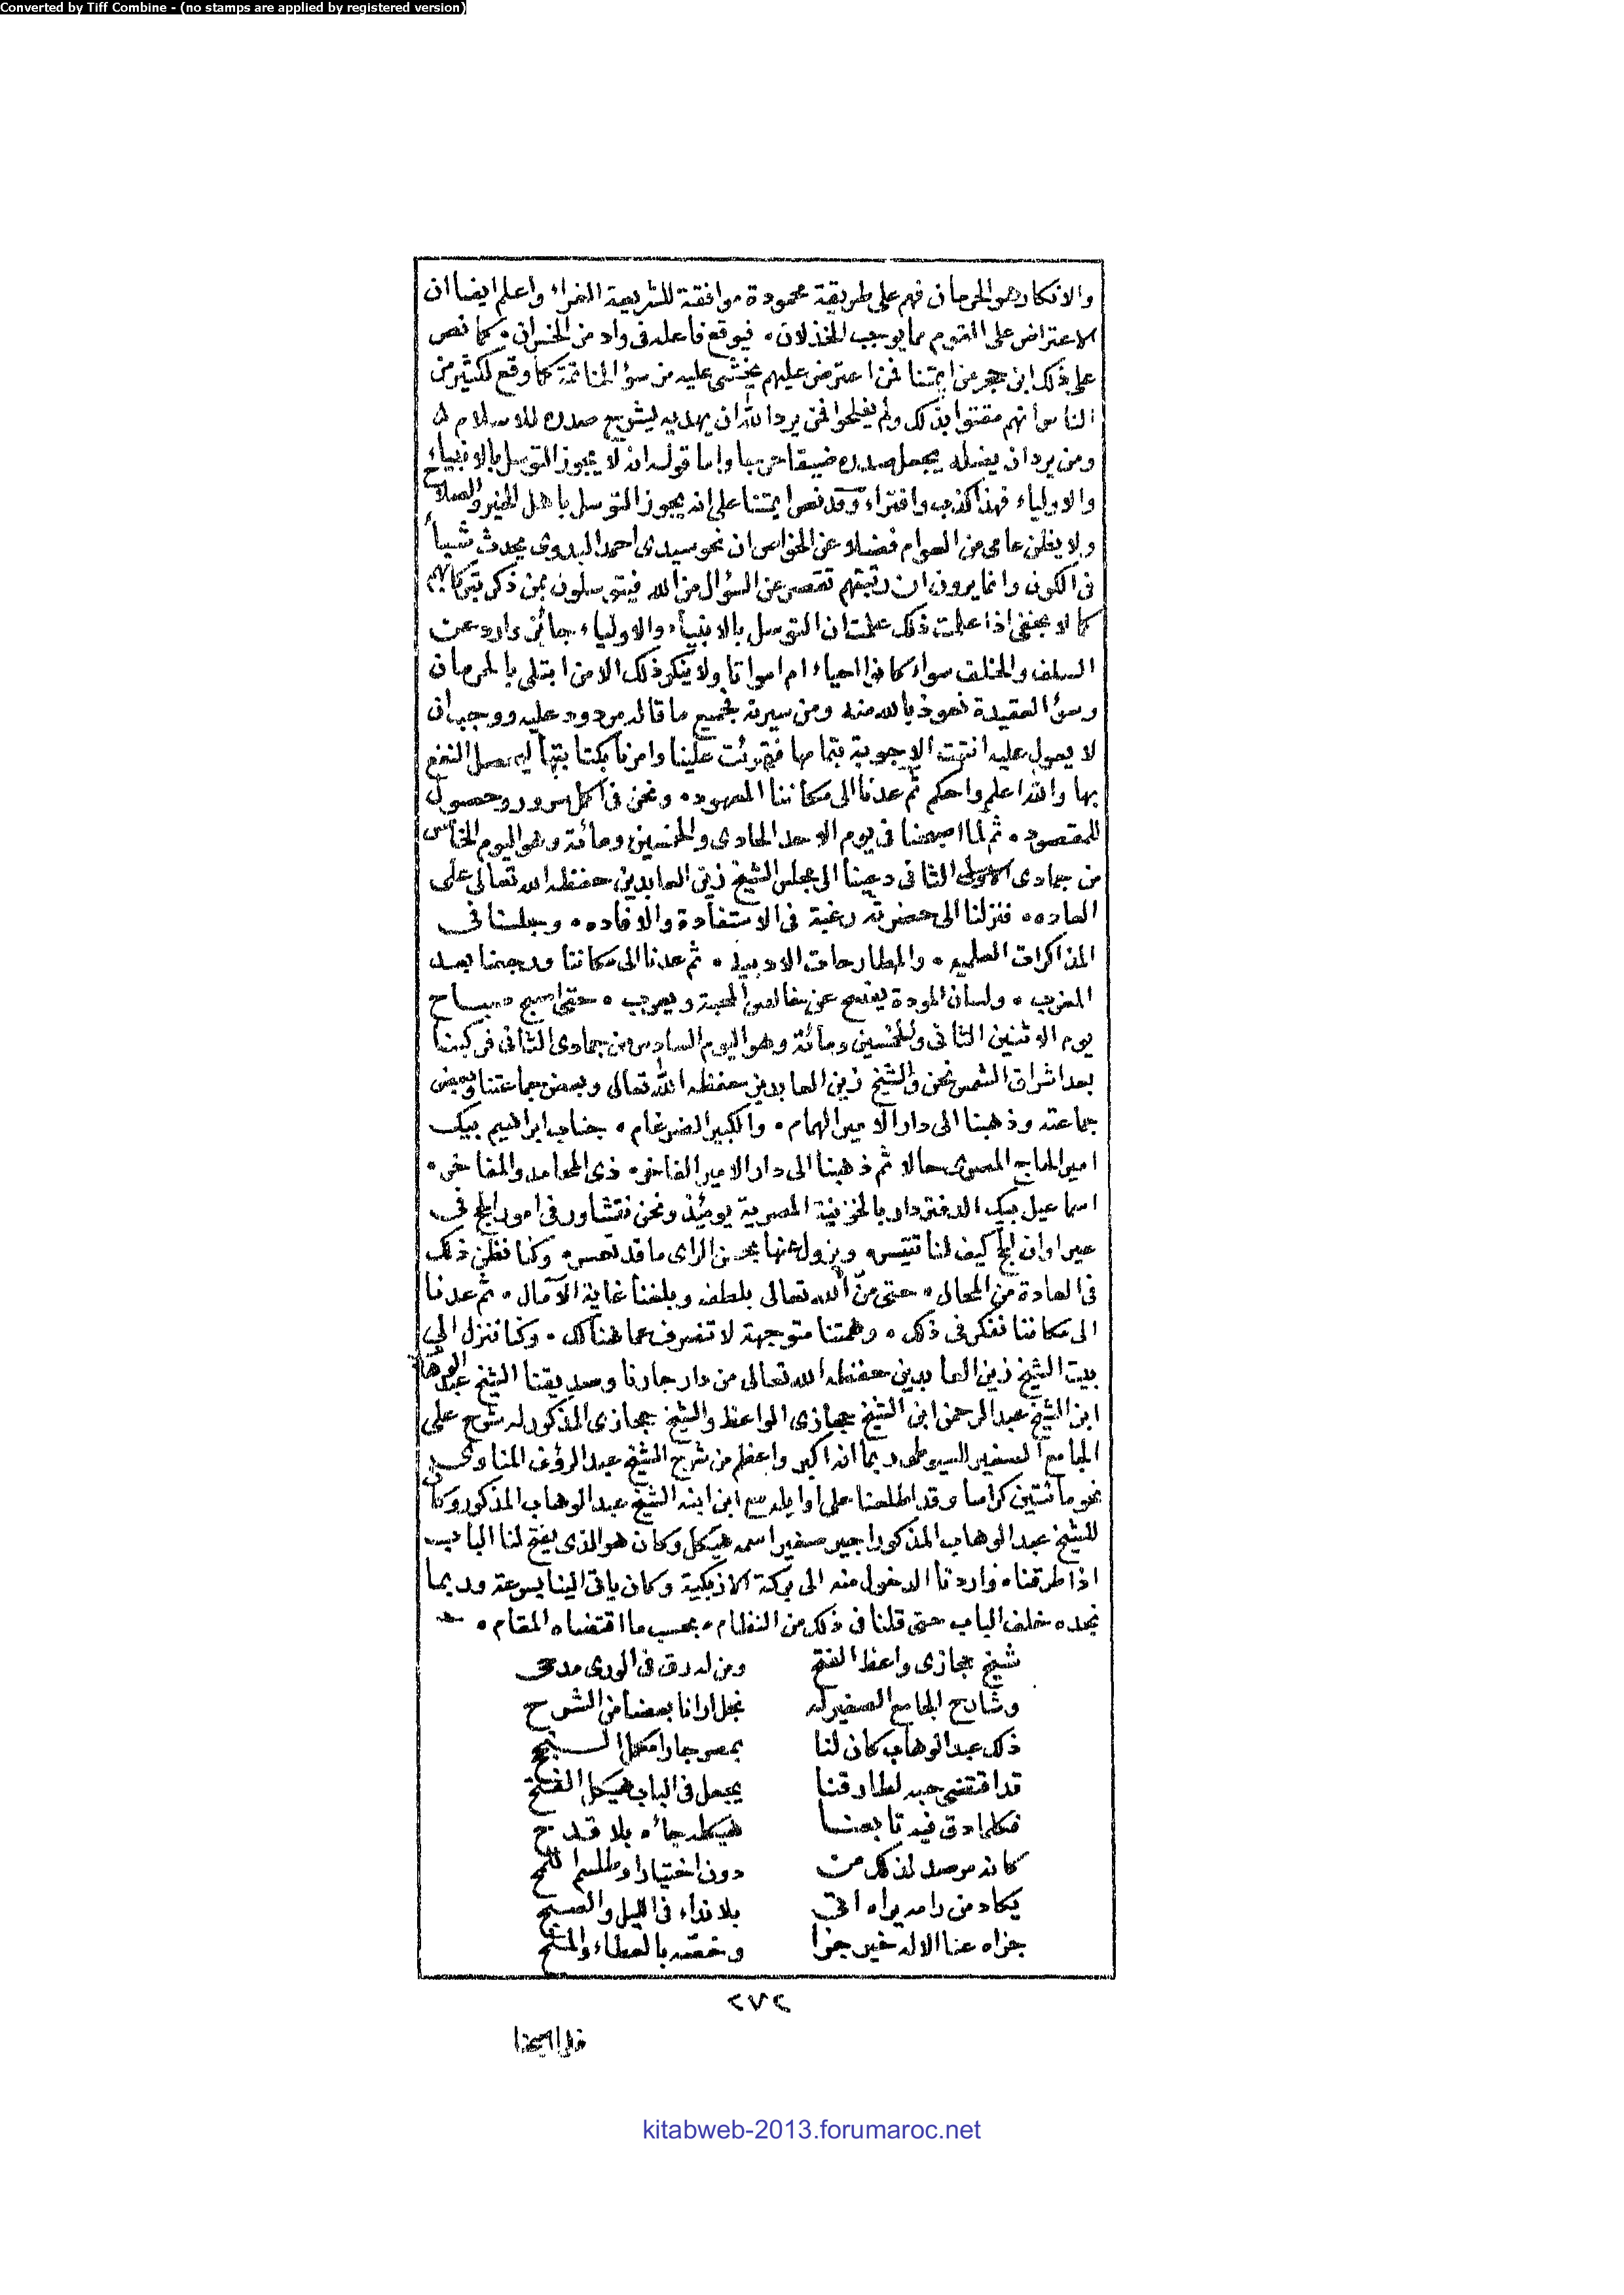 Converted by Tiff Combine - (no stamps are applied by registered version)
والانكار هو الحرمان فهم على طريقة محمودة موافقة للشريعة الغراء واعلم ايضا ان
الاعتراض على القوم مما يوجب الخذلان. فيوقع فاعله فى واد من الخسران. كما نص
على ذلك ابن حجر عن ايمتنا فمن اعترض عليهم يخشى عليه من سؤ الخاتمة كما وقع لكثير من
الناس انهم مقتوا بذلك ولم يفلحوا فمن يرد الله ان يهديه يشرح صدره للاسلام
ومن يرد ان يضله يجعل صدره ضيقا حرجا واما قوله انه لا يجوز التوسل بالانبياء
والاولياء فهذا كذب وافتراء وقد نص ايمتنا على انه يجوز التوسل باهل الخير والصلاح
ولا يظن عامى من العوام فضلا عن الخواص ان نحو سيدى احمد البدوى يحدث شيأ
فى الكون وانما يرون ان رتبتهم تقصر عن السؤال من الله فيتوسلون بمن ذكر تبركا بهم
كما لا يخفى اذا علمت ذلك علمت ان التوسل بالانبياء والاولياء جائز وارد عن
السلف والخلف سواء كانوا احياء ام امواتا ولا ينكر ذلك الا من ابتلى بالحرمان
وسؤ العقيدة نعوذ بالله منه ومن سيرته فجميع ما قاله مردود عليه ووجب ان
لا يعول عليه انتهت الاجوبة بتمامها فقرئت علينا وامرنا بكتابتها ليحصل النفع
بها والله اعلم واحكم ثم عدنا الى مكاننا المعهود. ونحن فى اكمل سرور وحصول
المقصود. ثم لما اصبحنا فى يوم الاحد الحادى والخمسين ومائة وهو اليوم الخامس
من جمادى الثانى دعينا الى مجلس الشيخ زين العابدين حفظه الله تعالى على
العاده. فنزلنا الى حضرته رغبة فى الاستفادة والافاده. وجلسنا فى
المذاكرات العلميه. والمطارحات الادبيه. ثم عدنا الى مكاننا ورجعنا بعد
المغرب. ولسان المودة يفصح عن خالص المحبة ويعرب. حتى اصبح صباح
يوم الاثنين الثانى والخمسين ومائة وهو اليوم السادس من جمادى الثانى فركبنا
بعد اشراق الشمس نحن والشيخ زين العابدين حفظه الله تعالى وبعض جماعتنا وبعض
جماعته وذهبنا الى دار الامير الهمام. والكبير الضرغام. جناب ابراهيم بيك
امير الحاج المصرى حالا ثم ذهبنا الى دار الامير الفاخر. ذى المحامد والمفاخر.
اسماعيل بيك الدفتردار بالخزينة المصرية يومئذ ونحن نتشاور فى امور الحج فى
غير اوان الحج كيف لنا تتيسر. ويزول عنها بحسن الراى ما قد تعسر. وكنا نظن ذلك
فى العادة من المحال. حتى من الله تعالى بلطفه وبلغنا غاية الآمال. ثم عدنا
الى مكاننا نفكر فى ذلك. وهمتنا متوجهة لا تنصرف عما هنالك. وكنا ننزل الى
بيت الشيخ زين العابدين حفظه الله تعالى من دار جارنا وصديقنا الشيخ عبد الوهاب
ابن الشيخ عبد الرحمن ابن الشيخ حجازى الواعظ والشيخ حجازى المذكور له شرح على
الجامع الصغير للسيوطى وربما انه اكبر واعظم من شرح الشيخ عبد الرؤف المناوى
نحو مائتين كراسا وقد اطلعنا على اوايله مع ابن ابنه الشيخ عبد الوهاب المذكور وكان
للشيخ عبد الوهاب المذكور اجير صغير اسمه هيكل وكان هو الذى يفتح لنا الباب
اذا طرقناه واردنا الدخول منه الى بركة الازبكية وكان ياتى الينا بسرعة وربما
نجده خلف الباب حتى قلنا فى ذلك من النظام. بحسب ما اقتضاه المقام.
شيخ حجازى واعظ الفتح ومن له رق فى الورى مدحى
وشارح الجامع الصغير له نجل ارانا بعضا من الشرح
ذلك عبد الوهاب كان لنا بمصر جارا مكمل
قد اقتضى حبه لطارقنا يجعل فى الباب هيكل الفتح
فكلما دق فيه تابعنا هيكله جاءه بلا قدح
كانه مرصد لذلك من دون اختيار وطلسم
يكاد من رامه يراه اتى بلا نداء فى الليل والصبح
جزاه عنا الاله خير جزا وخصه بالعطاء والمنح
٢٧٢
فلما اصبحنا
kitabweb-2013.forumaroc.net